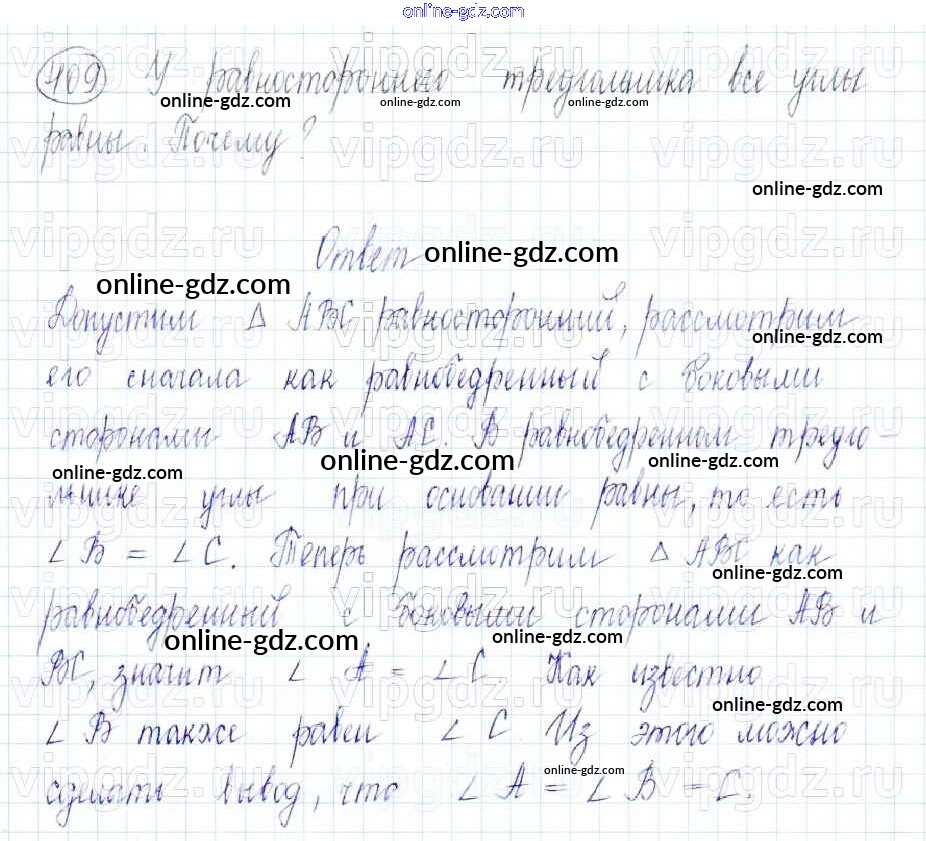 online-gdz.com
409 У равностороннего треугольника все углы
online-gdz.com online-gdz.com online-gdz.com
равны. Почему?
vipgdz.ru vipgdz.ru vipgdz.ru
online-gdz.com
Ответ online-gdz.com
online-gdz.com
Допустим Δ ABC равносторонний, рассмотрим
online-gdz.com
его сначала как равнобедренный с боковыми
сторонами AB и AC. В равнобедренном треуго-
online-gdz.com online-gdz.com online-gdz.com
льнике углы при основании равны, то есть
∠ B = ∠ C. Теперь рассмотрим Δ ABC как
online-gdz.com
равнобедренный с боковыми сторонами AB и
online-gdz.com online-gdz.com
BC, значит ∠ A = ∠ C. Как известно
online-gdz.com
∠ B также равен ∠ C. Из этого можно
online-gdz.com
сделать вывод, что ∠ A = ∠ B = C.